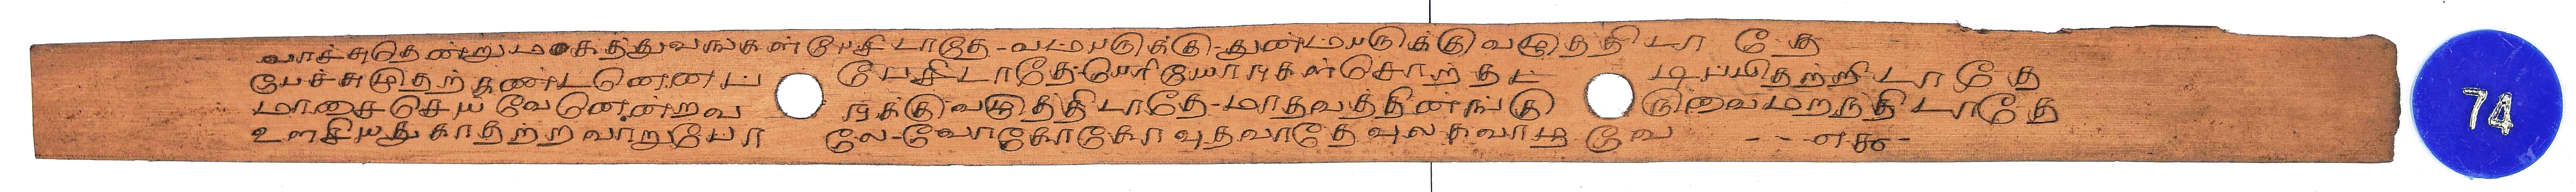 வாச்சுதென்று மகத்துவங்கள் பேசிடாதே-வம்படுக்கு-துன்மபடுக்கு வழுததிடா தே
பேச்சுமுதற் கண்டனெனப் பேசிடாதே-பெரியோர்கள் சொற் தட் டிப்பிதற்றிடாதே
மாசை செய வேனென்றவ ருக்கு வழுத்திடாதே-மாதவத்தின் ங்கு ருவை மறந்திடாதே
உளசியது காதற்ற வாறுபோ லே-வோகோகோ வுதவாதே வுலகவாழ வே - - ௭௬-
74